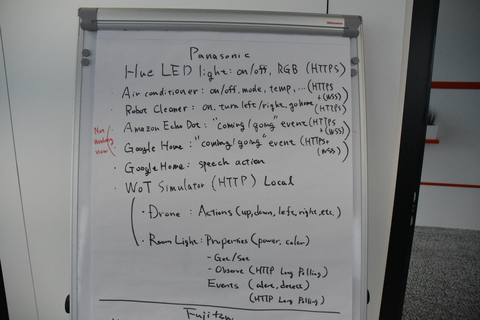 Panasonic
Hue LED light: on/off, RGB (HTTPS)
· Air conditioner: on/off, mode, temp, ... (HTTPS + (WSS)
· Robot Cleaner: on, turn left/right, go home (HTTPS)
· Amazon Echo Dot: "coming/going" event (HTTPS + (WSS)
· Google Home: "coming/going" event (HTTPS+ (WSS)
Not
now
· Google Home: speech action
· WoT Simulator (HTTP) Local
· Drone: Actions (up, down, left, right, etc.)
· Room Light: Properties (power, color)
- Get/Set
- Observe (HTTP Long Polling)
Events (alert, detect)
(HTTP Long Polling)
Fujitsu